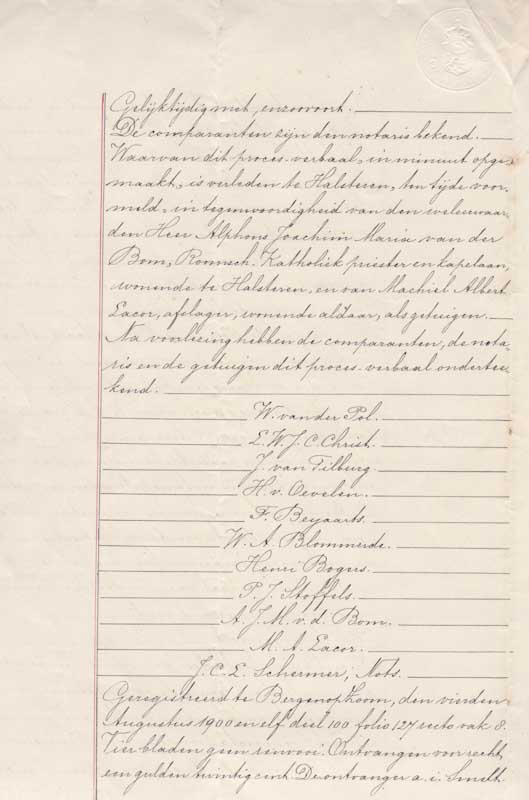 Gelijktijdig met, enzovoort.
De comparanten zijn den notaris bekend.
Waarvan dit proces-verbaal, in minuut opge-
maakt, is verleden te Halsteren, ten tijde voor-
meld, in tegenwoordigheid van den weleerwaar-
den Heer Alphons Joachim Maria van der
Bom, Roomsch-Katholiek priester en kapelaan,
wonende te Halsteren, en van Machiel Albert
Lacor, afslager, wonende aldaar, als getuigen.
Na voorlezing hebben de comparanten, de nota-
ris en de getuigen dit proces-verbaal onderte-
kend.
W. van der Pol.
E. W. J. C. Christ.
J. van Tilburg.
H. v. Oevelen.
F. Beyaarts.
W. A. Blommerde.
Henri Bogers.
P. J. Stoffels.
A. J. M. v. d. Bom.
M. A. Lacor.
J. C. L. Schermer, Nots.
Geregistreerd te Bergenopzoom, den vierden
Augustus 1900 en elf deel 100 folio 127 recto vak 8.
Vier bladen geen renvooi. Ontvangen voor recht
een gulden twintig cent. De ontvanger a. i. Smelt